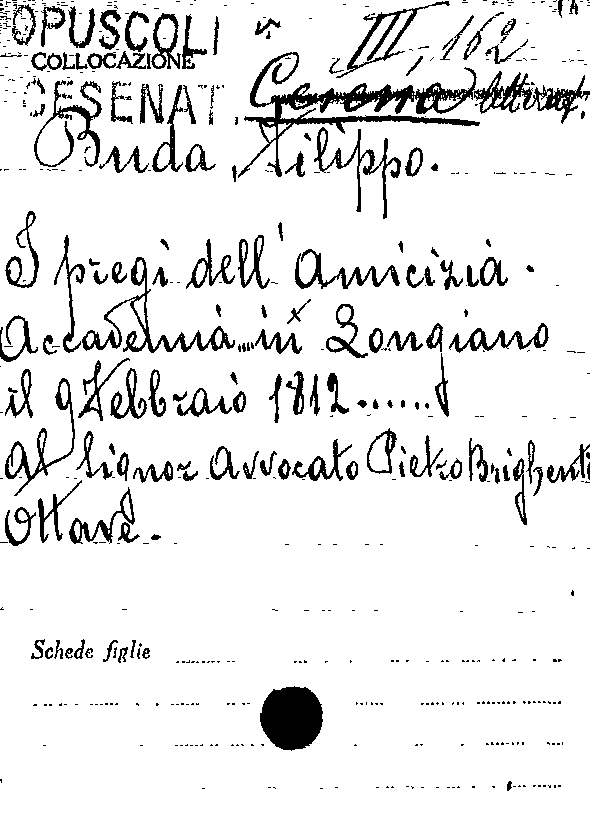 OPUSCOLI III, 162
COLLOCAZIONE
CESENAT. Cesena letterat.
Buda, Filippo.
I pregi dell'Amicizia.
Accademia in Longiano
il 9 Febbraio 1812......
Al Signor Avvocato Pietro Brighenti
Ottave.
Schede figlie